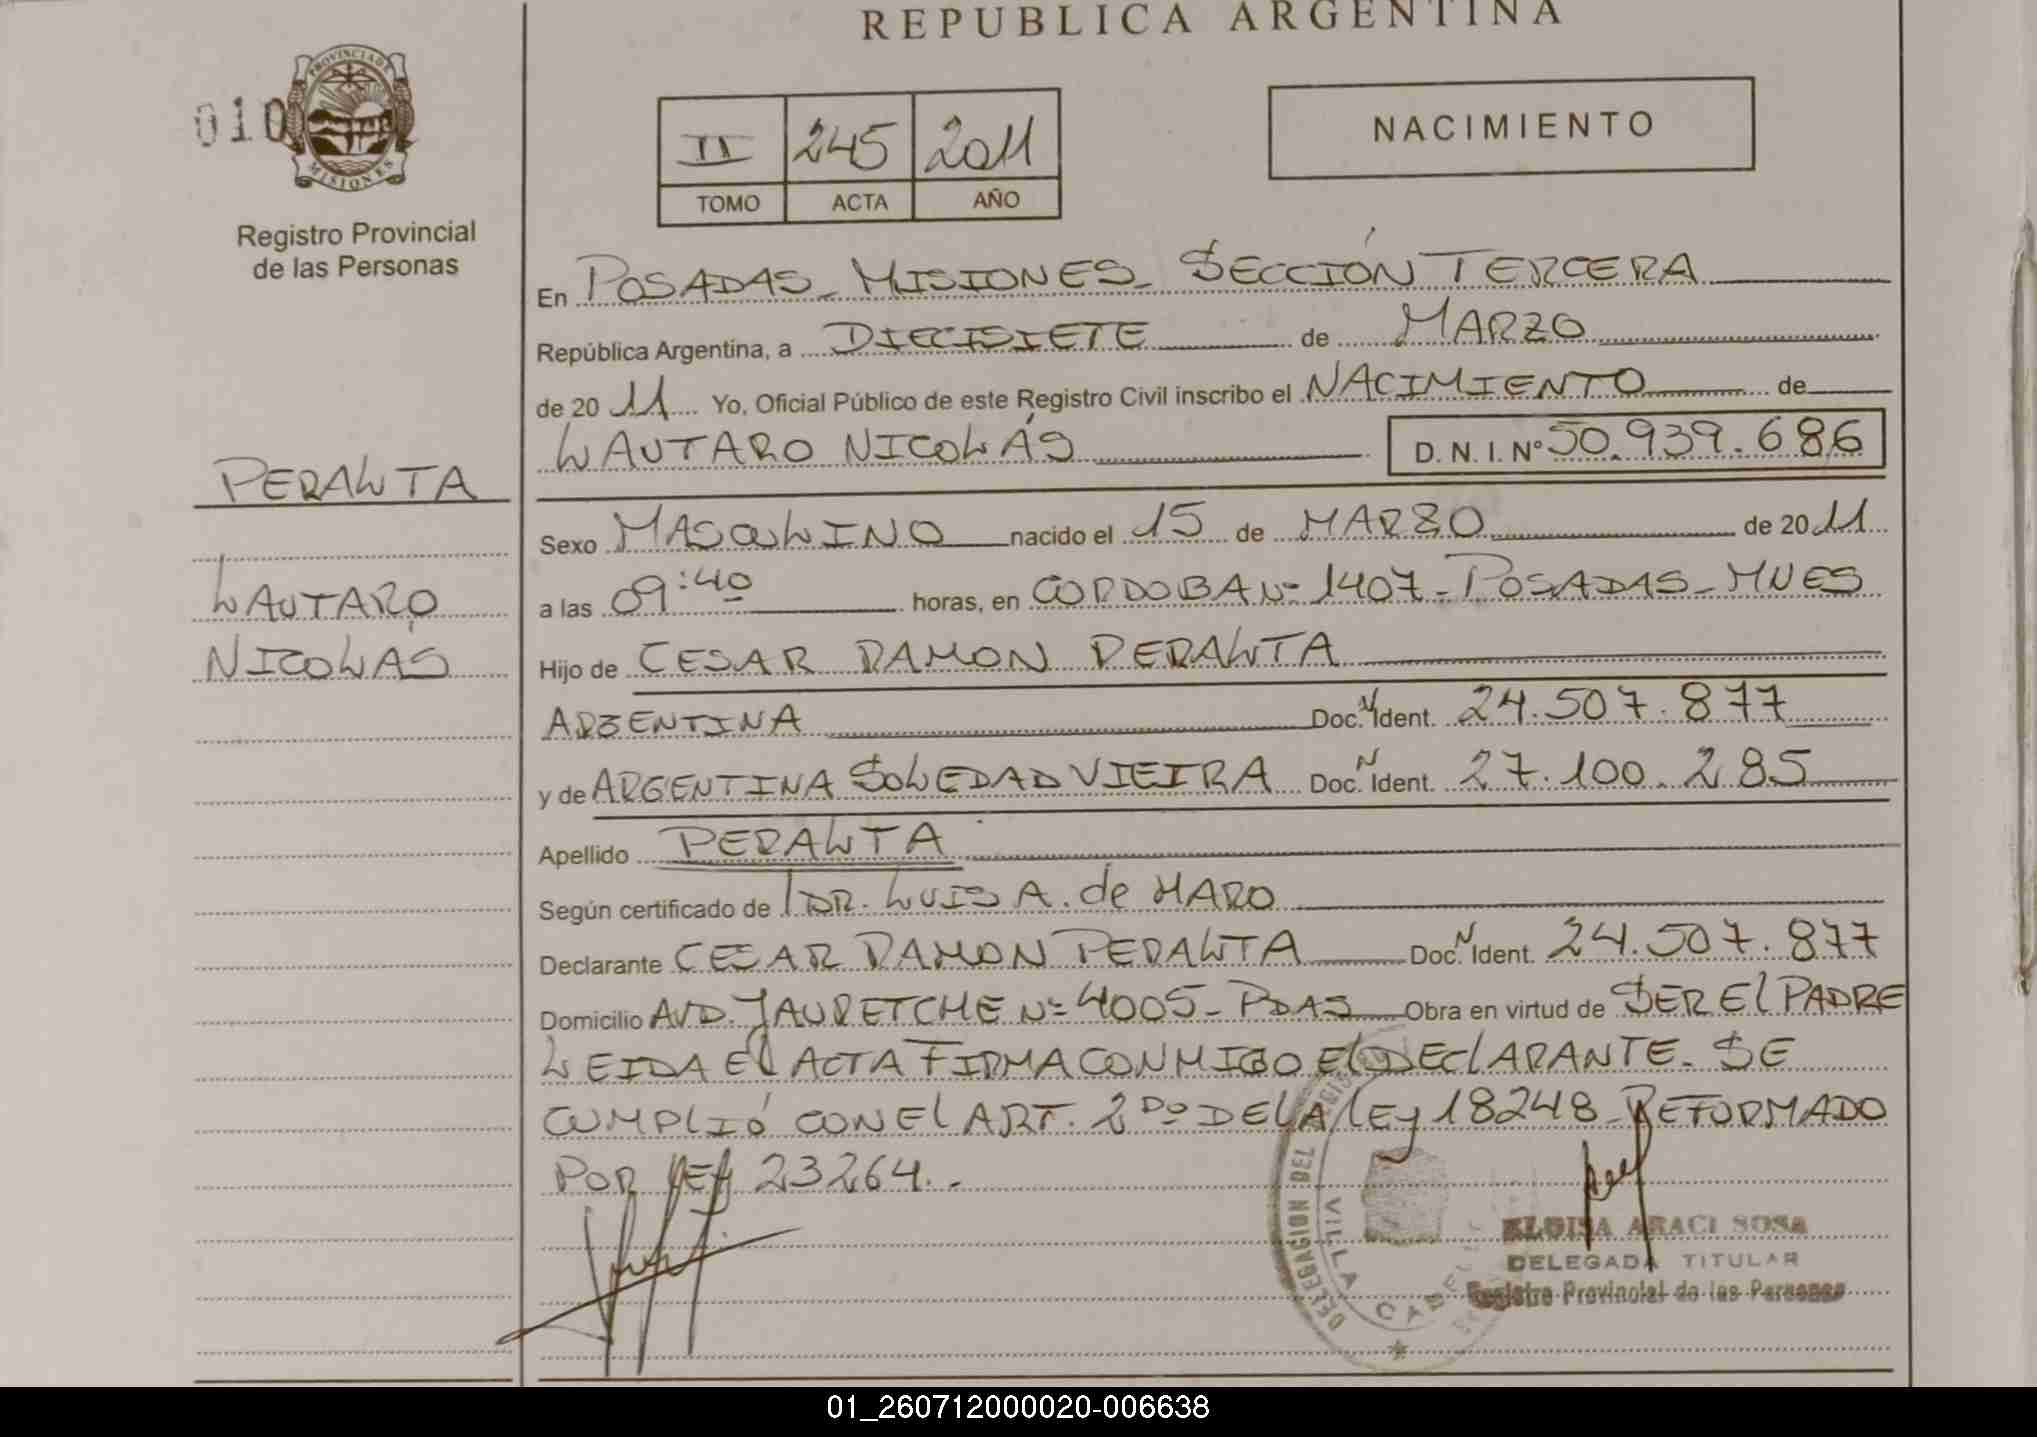 REPUBLICA ARGENTINA
010
PROVINCIA DE
MISIONES
Registro Provincial
de las Personas
II 245 2011
TOMO ACTA AÑO
NACIMIENTO
En POSADAS - MISIONES - SECCIÓN TERCERA
República Argentina, a DIECISIETE de MARZO
de 20 11 Yo, Oficial Público de este Registro Civil inscribo el NACIMIENTO de
LAUTARO NICOLÁS D. N. I. Nº 50.939.686
PERALTA
LAUTARO
NICOLÁS
Sexo MASCULINO nacido el 15 de MARZO de 20 11
a las 09:40 horas, en CORDOBA Nº 1407 - POSADAS - MNES
Hijo de CESAR RAMON PERALTA
ARGENTINA Doc. N Ident. 24.507.877
y de ARGENTINA SOLEDAD VIEIRA Doc. N Ident. 27.100.285
Apellido PERALTA
Según certificado de DR. LUIS A. de MARO
Declarante CESAR RAMON PERALTA Doc. N Ident. 24.507.877
Domicilio AVD. JAURETCHE Nº 4005 - PDAS Obra en virtud de SER El PADRE
LEIDA El ACTA FIRMA CONMIGO El DEClARANTE. SE
CUMPLIÓ CON El ART. 2DO DE LA lEy 18248 - REFORMADO
POR lEy 23264. -
DELEGACION DEL
VILLA CABEL
ELOISA ARACI SOSA
DELEGADA TITULAR
Registro Provincial de las Personas
01_260712000020-006638